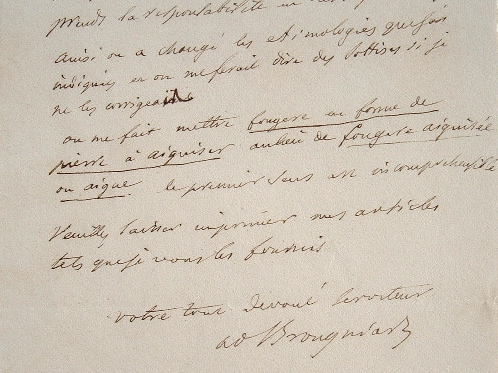 prends la responsabilité en
ainsi on a changé les etimologies que j'ai
indiquées en on me ferait dire des sottises si je
ne les corrigeais
on me fait mettre fougere en forme de
pierre à aiguiser au lieu de fougere aiguisée
ou aigue le premier sens est incomprehensible
Veuillez laisser imprimer mes articles
tels que je vous les fournis
votre tout devoué serviteur
ad Brongniart